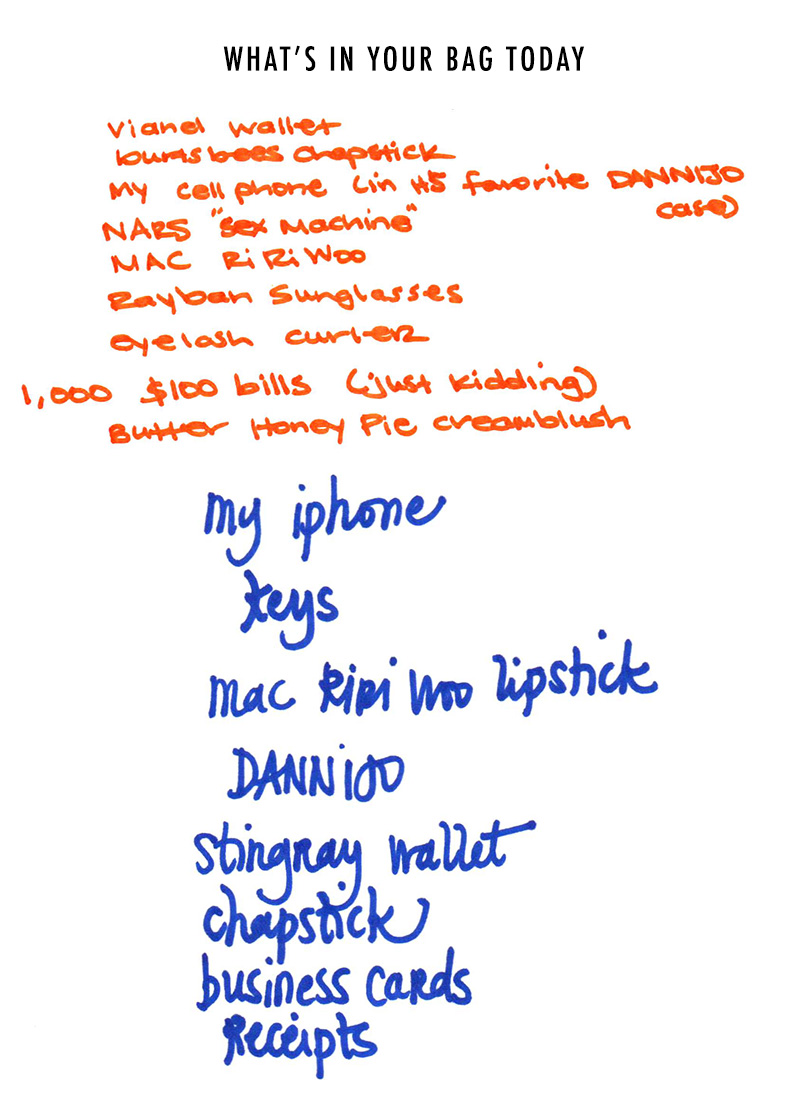 WHAT'S IN YOUR BAG TODAY
Viand wallet
burtsbees chapstick
My cell phone (in its favorite DANNIJO
case)
NARS "sex Machine"
MAC RiRiWoo
Rayban Sunglasses
eyelash curler
1,000 $100 bills (just kidding)
Butter Honey Pie creamblush
my iphone
keys
mac RiRi Woo lipstick
DANNIJO
stingray wallet
chapstick
business cards
Receipts